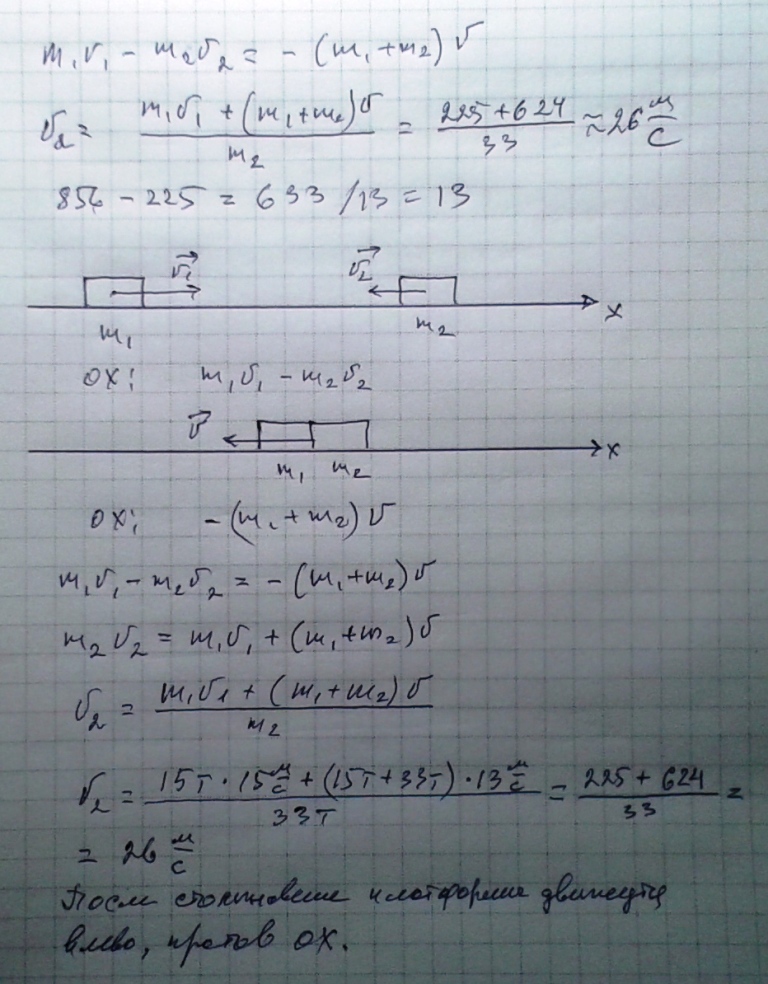 m₁v₁ - m₂v₂ = - (m₁ + m₂) v
v₂ = (m₁v₁ + (m₁+m₂)v) / m₂ = (225 + 624) / 33 ≈ 26 м/с
856 - 225 = 633 / 13 = 13
v₁ v₂
x
m₁ m₂
ох: m₁v₁ - m₂v₂
v
x
m₁ m₂
ох: - (m₁ + m₂) v
m₁v₁ - m₂v₂ = - (m₁+m₂) v
m₂v₂ = m₁v₁ + (m₁+m₂) v
v₂ = (m₁v₁ + (m₁+m₂) v) / m₂
v₂ = (15т · 15 м/с + (15т + 33т) · 13 м/с) / 33т = (225 + 624) / 33 =
= 26 м/с
После столкновение платформы движутся
влево, против ОХ.